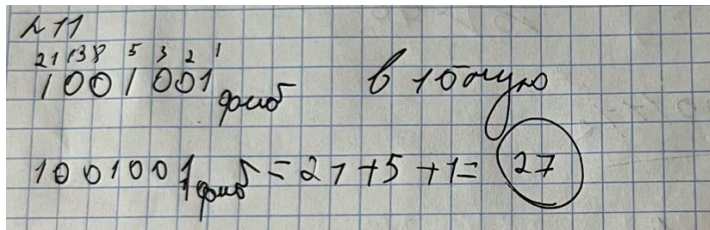 №11
21 13 8 5 3 2 1
1001001фиб в 10ную
1001001фиб = 21 + 5 + 1 = 27